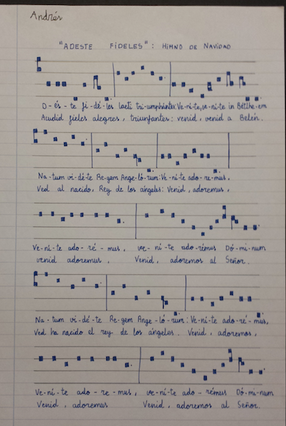 Andrés
"ADESTE FIDELES": HIMNO DE NAVIDAD
D-és-te fi-dé-les laeti tri-umphántes Ve-ní-te, ve-ní-te in Béthe-em
Audid fieles alegres, triunfantes: venid, venid a Belén.
Na-tum vi-dé-te Re-gem Ange-ló-rum: Ve-ní-te ado-re-mus,
Ved al nacido, Rey de los ángeles: Venid, adoremus,
Ve-ni-te ado-ré-mus, ve-ni-te ado-rémus Dó-mi-num
venid adoremus, Venid, adoremos al Señor.
Na-tum vi-dé-te Re-gem Ange-ló-rum: Ve-ní-te ado-re-mus,
Ved ha nacido el rey de los ángeles. Venid, adoremos,
Ve-ni-te ado-re-mus, ve-ni-te ado-rémus Dó-mi-num
Venid, adoremas Venid, adoremos al Señor.